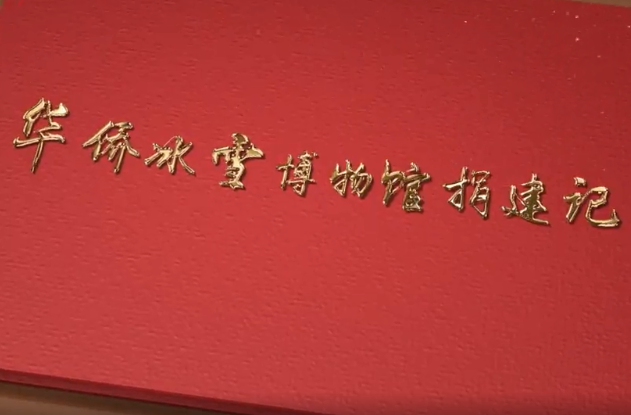 华侨冰雪博物馆捐建记